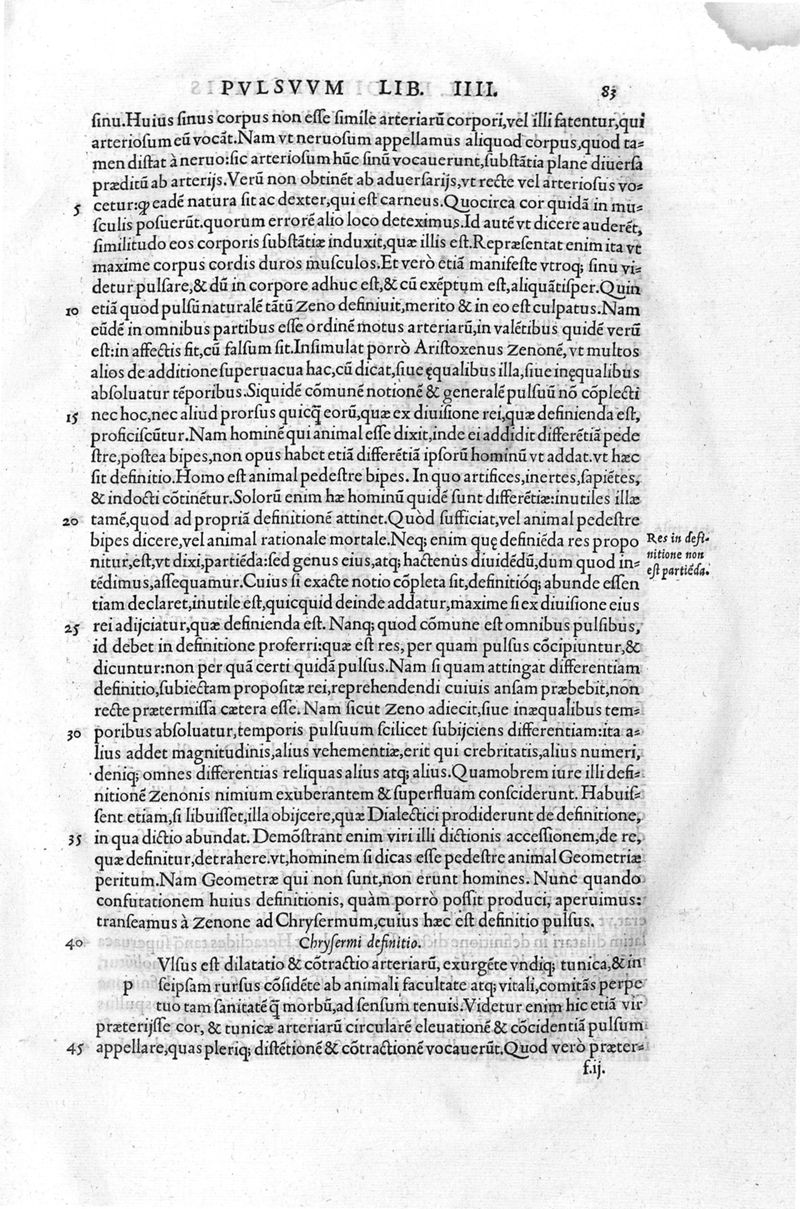 PVLSVVM LIB. IIII. 83
ſinu.Huius ſinus corpus non eſſe ſimile arteriarũ corpori,vel illi fatentur,qui
arterioſum eũ vocãt.Nam vt neruoſum appellamus aliquod corpus,quod ta=
men diſtat à neruo:ſic arterioſum hũc ſinũ vocauerunt,ſubſtãtia plane diuerſa
præditũ ab arterijs.Verũ non obtinẽt ab aduerſarijs,vt recte vel arterioſus vo=
5 cetur:ꝙ eadẽ natura ſit ac dexter,qui eſt carneus.Quocirca cor quidã in mu=
ſculis poſuerũt.quorum errorẽ alio loco deteximus.Id autẽ vt dicere auderẽt,
ſimilitudo eos corporis ſubſtãtiæ induxit,quæ illis eſt.Repræſentat enim ita vt
maxime corpus cordis duros muſculos.Et verò etiã manifeſte vtroq; ſinu vi=
detur pulſare,& dũ in corpore adhuc eſt,& cũ exẽptum eſt,aliquãtiſper.Quin
10 etiã quod pulſũ naturalẽ tãtũ Zeno definiuit,merito & in eo eſt culpatus.Nam
eũdẽ in omnibus partibus eſſe ordinẽ motus arteriarũ,in valẽtibus quidẽ verũ
eſt:in affectis ſit,cũ falſum ſit.Inſimulat porrò Ariſtoxenus Zenonẽ,vt multos
alios de additione ſuperuacua hac,cũ dicat,ſiue ęqualibus illa,ſiue inęqualibus
abſoluatur tẽporibus.Siquidẽ cõmunẽ notionẽ & generalẽ pulſuũ nõ cõplecti
15 nec hoc,nec aliud prorſus quicq̃ eorũ,quæ ex diuiſione rei,quæ definienda eſt,
proficiſcũtur.Nam hominẽ qui animal eſſe dixit,inde ei addidit differẽtiã pede
ſtre,poſtea bipes,non opus habet etiã differẽtiã ipſorũ hominũ vt addat.vt hæc
ſit definitio.Homo eſt animal pedeſtre bipes. In quo artifices,inertes,ſapiẽtes,
& indocti cõtinẽtur.Solorũ enim hæ hominũ quidẽ ſunt differẽtiæ:inutiles illæ
20 tamẽ,quod ad propriã definitionẽ attinet.Quòd ſufficiat,vel animal pedeſtre
bipes dicere,vel animal rationale mortale.Neq; enim quę definiẽda res propo
Res in defi-
nitione non
eſt partiẽda.
nitur,eſt,vt dixi,partiẽda:ſed genus eius,atq; hactenus diuidẽdũ,dum quod in=
tẽdimus,aſſequamur.Cuius ſi exacte notio cõpleta ſit,definitióq; abunde eſſen
tiam declaret,inutile eſt,quicquid deinde addatur,maxime ſi ex diuiſione eius
25 rei adijciatur,quæ definienda eſt. Nanq; quod cõmune eſt omnibus pulſibus,
id debet in definitione proferri:quæ eſt res,per quam pulſus cõcipiuntur,&
dicuntur:non per quã certi quidã pulſus.Nam ſi quam attingat differentiam
definitio,ſubiectam propoſitæ rei,reprehendendi cuiuis anſam præbebit,non
recte prætermiſſa cætera eſſe. Nam ſicut Zeno adiecit,ſiue inæqualibus tem=
30 poribus abſoluatur,temporis pulſuum ſcilicet ſubijciens differentiam:ita a=
lius addet magnitudinis,alius vehementiæ,erit qui crebritatis,alius numeri,
deniq; omnes differentias reliquas alius atq; alius.Quamobrem iure illi defi=
nitionẽ Zenonis nimium exuberantem & ſuperfluam conſciderunt. Habuiſ=
ſent etiam,ſi libuiſſet,illa obijcere,quæ Dialectici prodiderunt de definitione,
35 in qua dictio abundat. Demõſtrant enim viri illi dictionis acceſſionem,de re,
quæ definitur,detrahere.vt,hominem ſi dicas eſſe pedeſtre animal Geometriæ
peritum.Nam Geometræ qui non ſunt,non erunt homines. Nunc quando
confutationem huius definitionis, quàm porrò poſſit produci, aperuimus:
tranſeamus à Zenone ad Chryſermum,cuius hæc eſt definitio pulſus.
40 Chryſermi definitio.
P Vlſus eſt dilatatio & cõtractio arteriarũ, exurgẽte vndiq; tunica,& in
ſeipſam rurſus cõſidẽte ab animali facultate atq; vitali,comitãs perpe
tuo tam ſanitatẽ q̃ morbũ,ad ſenſum tenuis.Videtur enim hic etiã vir
præterijſſe cor, & tunicæ arteriarũ circularẽ eleuationẽ & cõcidentiã pulſum
45 appellare,quas pleriq; diſtẽtionẽ & cõtractionẽ vocauerũt.Quod verò præter=
f.ij.